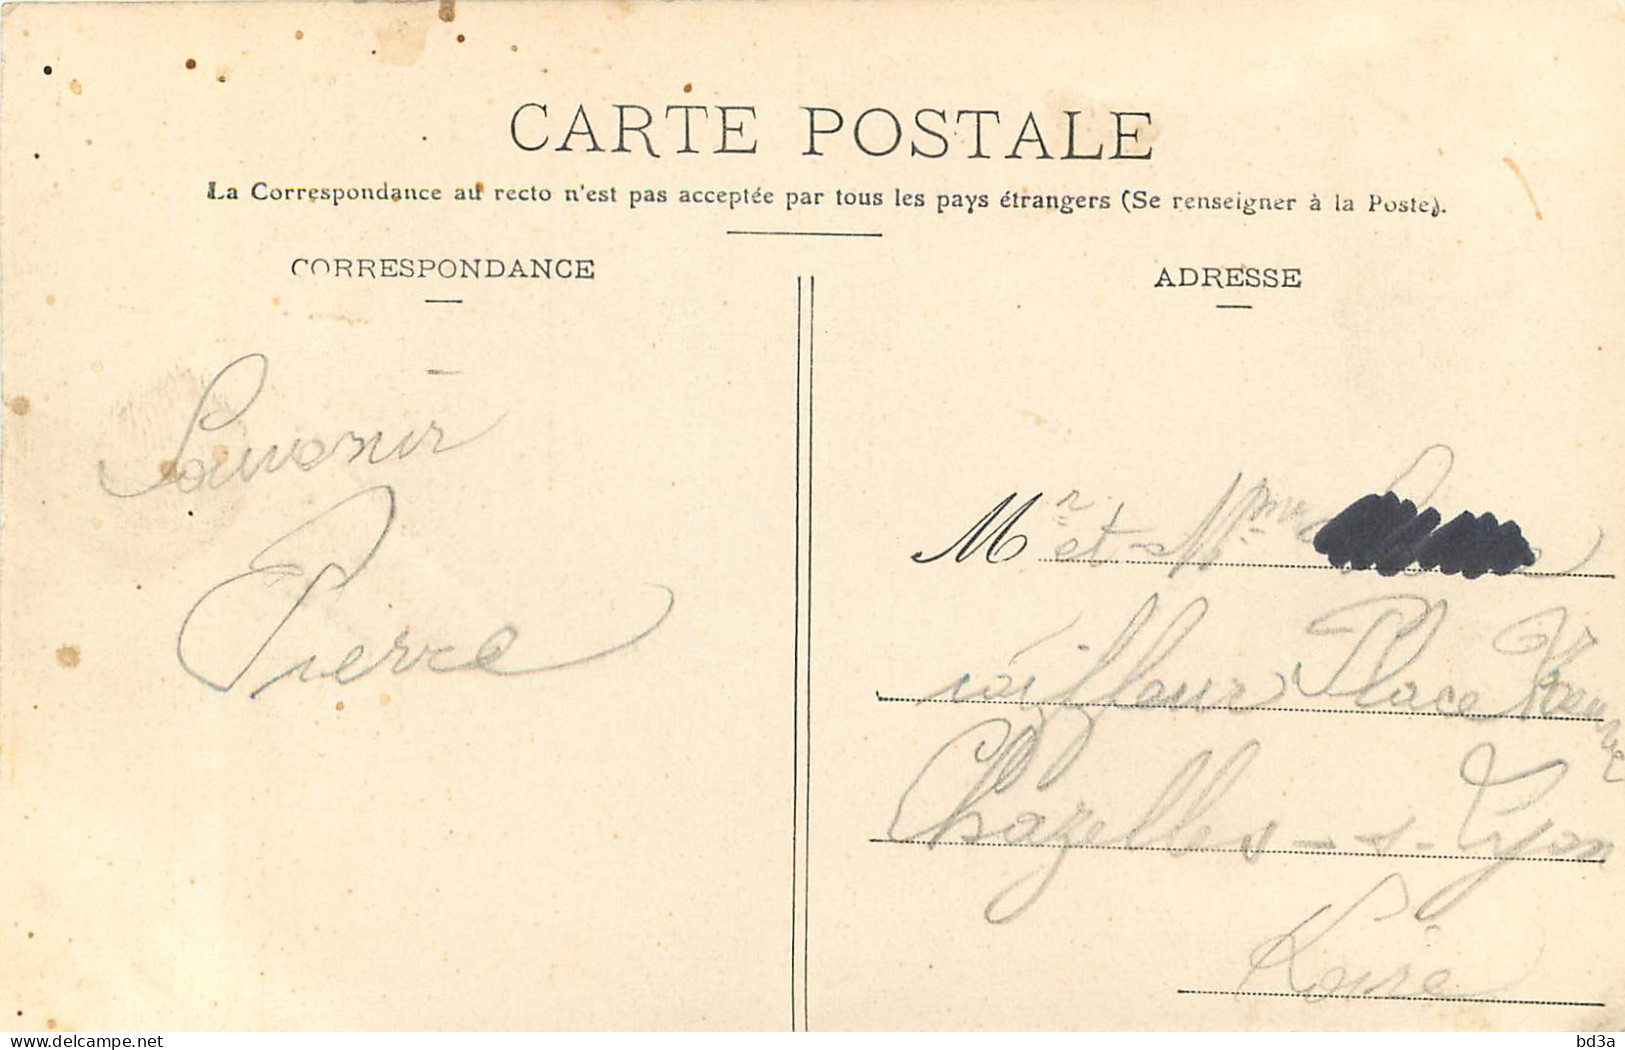 CARTE POSTALE
La Correspondance au recto n'est pas acceptée par tous les pays étrangers (Se renseigner à la Poste).
CORRESPONDANCE
Souvenir
Pierre
ADRESSE
Mr et Mme
Coiffeur Place
Chazelles-s-Lyon
Loire
www.delcampe.net
bd3a